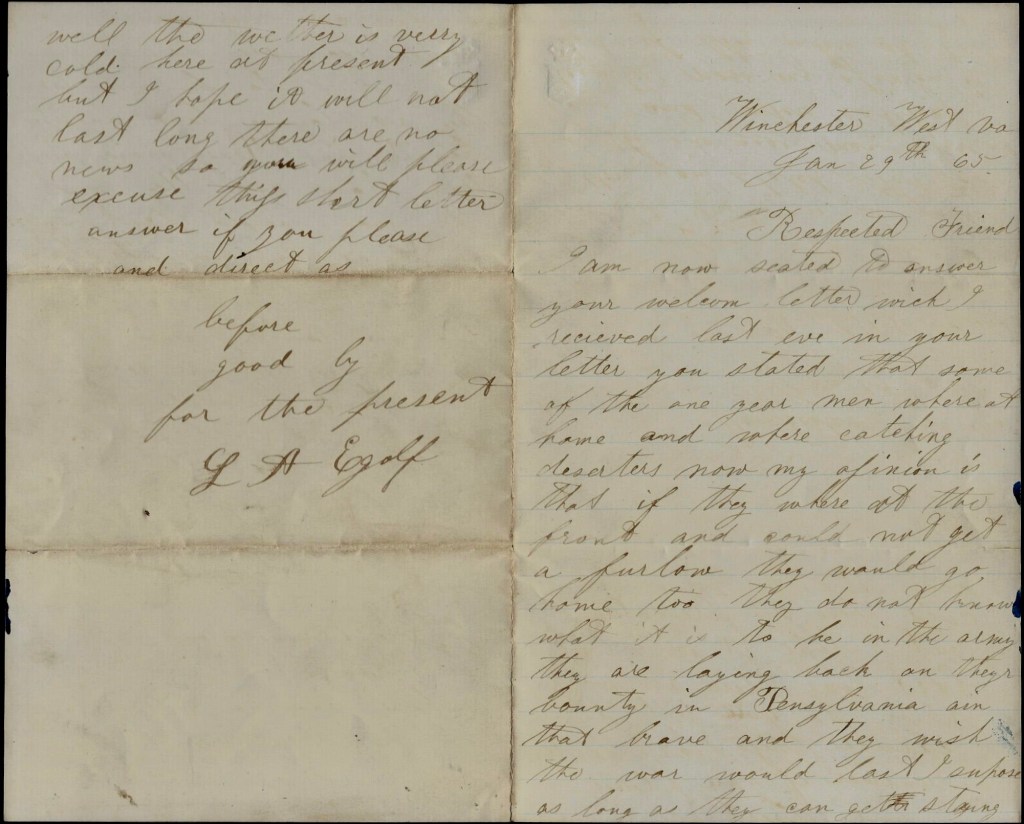 Winchester West va
Jan 29th 65
Respected Friend
I am now seated to answer
your welcom letter wich I
recieved last eve in your
letter you stated that some
of the one year men where at
home and where catching
deserters now my opinion is
that if they where at the
front and could not get
a furlow they would go
home too they do not know
what it is to be in the army
they are laying back on theyr
bounty in Pensylvania ain
that brave and they wish
the war would last I supose
as long as they can get staying
well the wether is verry
cold here at present
but I hope it will not
last long there are no
news so you will please
excuse this short letter
answer if you please
and direct as
before
good by
for the present
L A Egolf